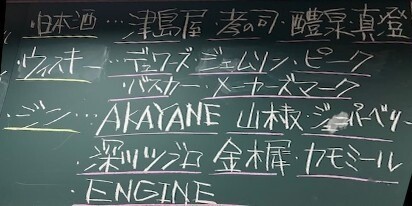 ・日本酒…津島屋・孝の司・醴泉真澄
・ウィスキー…デュワーズ・ジェムソン・ピーク
・バスカー・メーカーズマーク
・ジン…AKAYANE 山椒・ジュニパーベリー
・深川ツブロ 金木犀・カモミール
・ENGINE